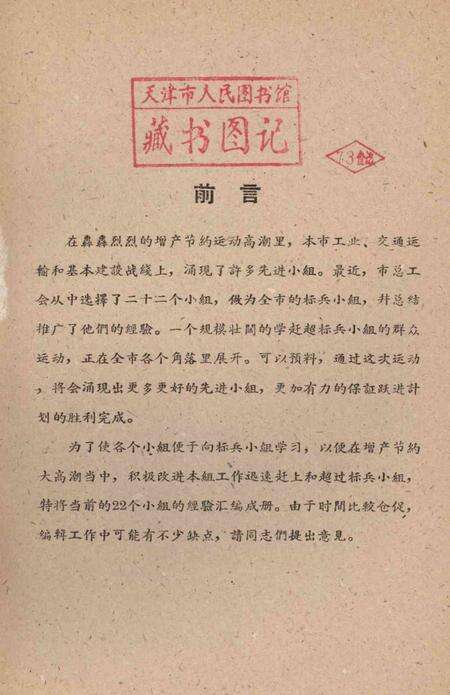 天津市人民图书馆
藏书图记
前言
在轟轟烈烈的增产节約运动高潮里，本市工业、交通运
輸和基本建設战线上，涌现了許多先进小組。最近，市总工
会从中选擇了二十二个小組，做为全市的标兵小組，幷总結
推广了他們的經驗。一个規模壮闊的学赶超标兵小組的群众
运动，正在全市各个角落里展开。可以預料，通过这次运动
，将会涌现出更多更好的先进小組，更加有力的保証跃进計
划的胜利完成。
为了使各个小組便于向标兵小組学习，以便在增产节約
大高潮当中，积极改进本組工作迅速赶上和超过标兵小組，
特将当前的22个小組的經驗汇編成册。由于时間比較仓促，
編輯工作中可能有不少缺点，請同志們提出意見。